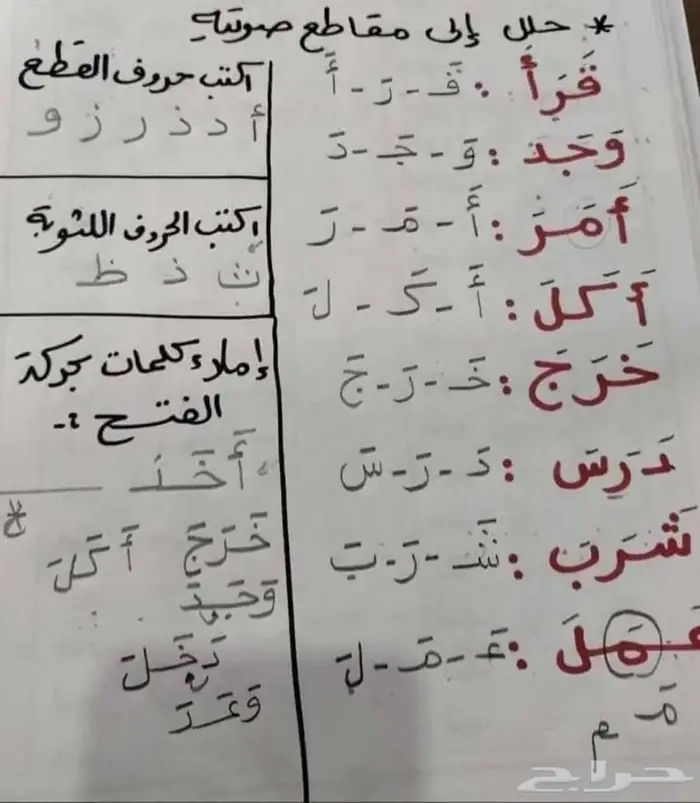 * حلل إلى مقاطع صوتية
قَرَأَ : قَـ - رَ - أَ
وَجَدَ : وَ - جَـ - دَ
أَمَرَ : أَ - مَـ - رَ
أَكَلَ : أَ - كَـ - لَ
خَرَجَ : خَـ - رَ - جَ
دَرَسَ : دَ - رَ - سَ
شَرَبَ : شَـ - رَ - بَ
عَمَلَ : عَـ - مَـ - لَ
مَـ
م
اكتب حروف القطع
أ د ذ ر ز و
اكتب الحروف اللثوية
ث ذ ظ
إملاء كلمات بحركة
الفتح :-
أَخَذَ
خَرَجَ أَكَلَ
وَجَدَ
دَخَلَ
حراج